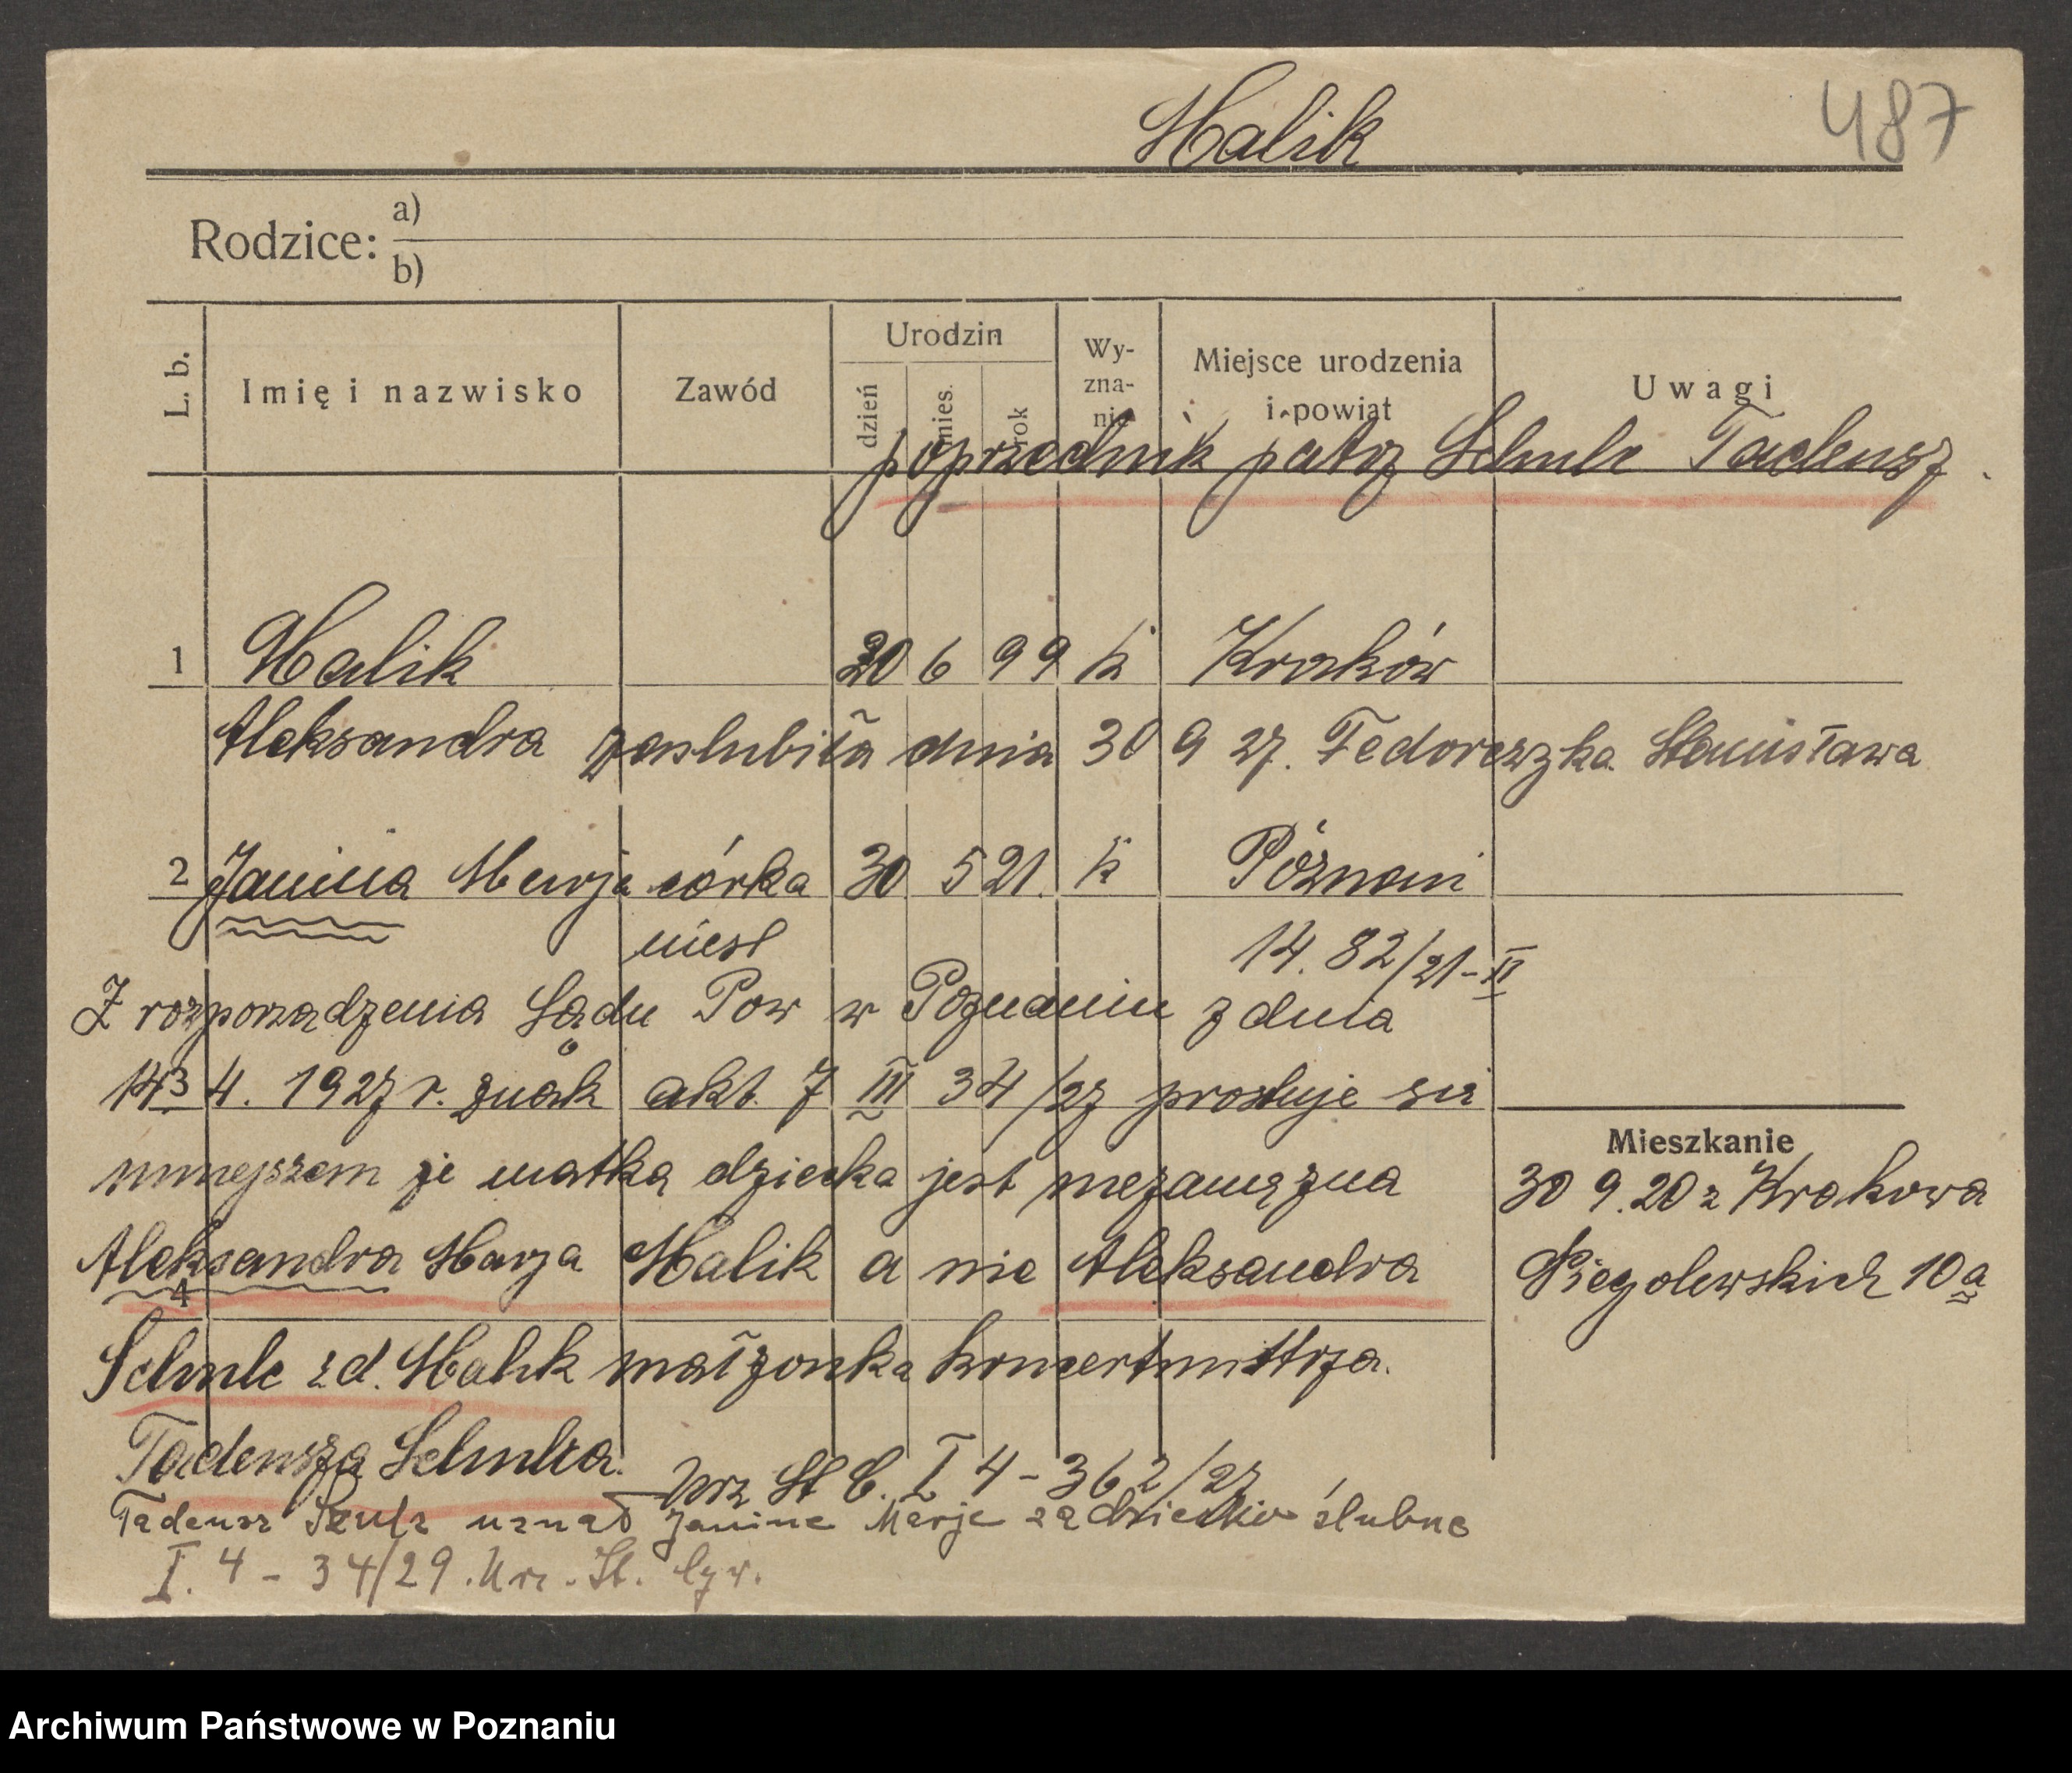 487
Halik
Rodzice: a)
b)
L. b.
Imię i nazwisko
Zawód
Urodzin
dzień
mies.
rok
Wy-
zna-
nie
Miejsce urodzenia
i powiat
Uwagi
poprzednik patrz Schulc Tadeusz
1 Halik 30 6 99 k Kraków
Aleksandra zaslubiła dnia 30 9 27. Fedoreszka Stanisława
2 Janina Marja córka 30 5 21. k Poznań
niesl 14. 82/21-II
Z rozporządzenia Sądu Pow w Poznaniu z dnia
14 4. 1927 r. znak akt. 7 III 34/27 prostuje się
3
niniejszem że matką dziecka jest niezamężna
Aleksandra Marja Halik a nie Aleksandra
4
Schulc z d. Halik małżonka koncertmistrza.
Tadeusza Schulca. Urz St C. I 4-362/27
Tadeusz Szulc uznał Janine Marje za dziecko ślubne
I. 4 - 34/29. Urz. St. Cyw.
Mieszkanie
30 9.20 z Krakowa
Niegolewskich 10a
Archiwum Państwowe w Poznaniu